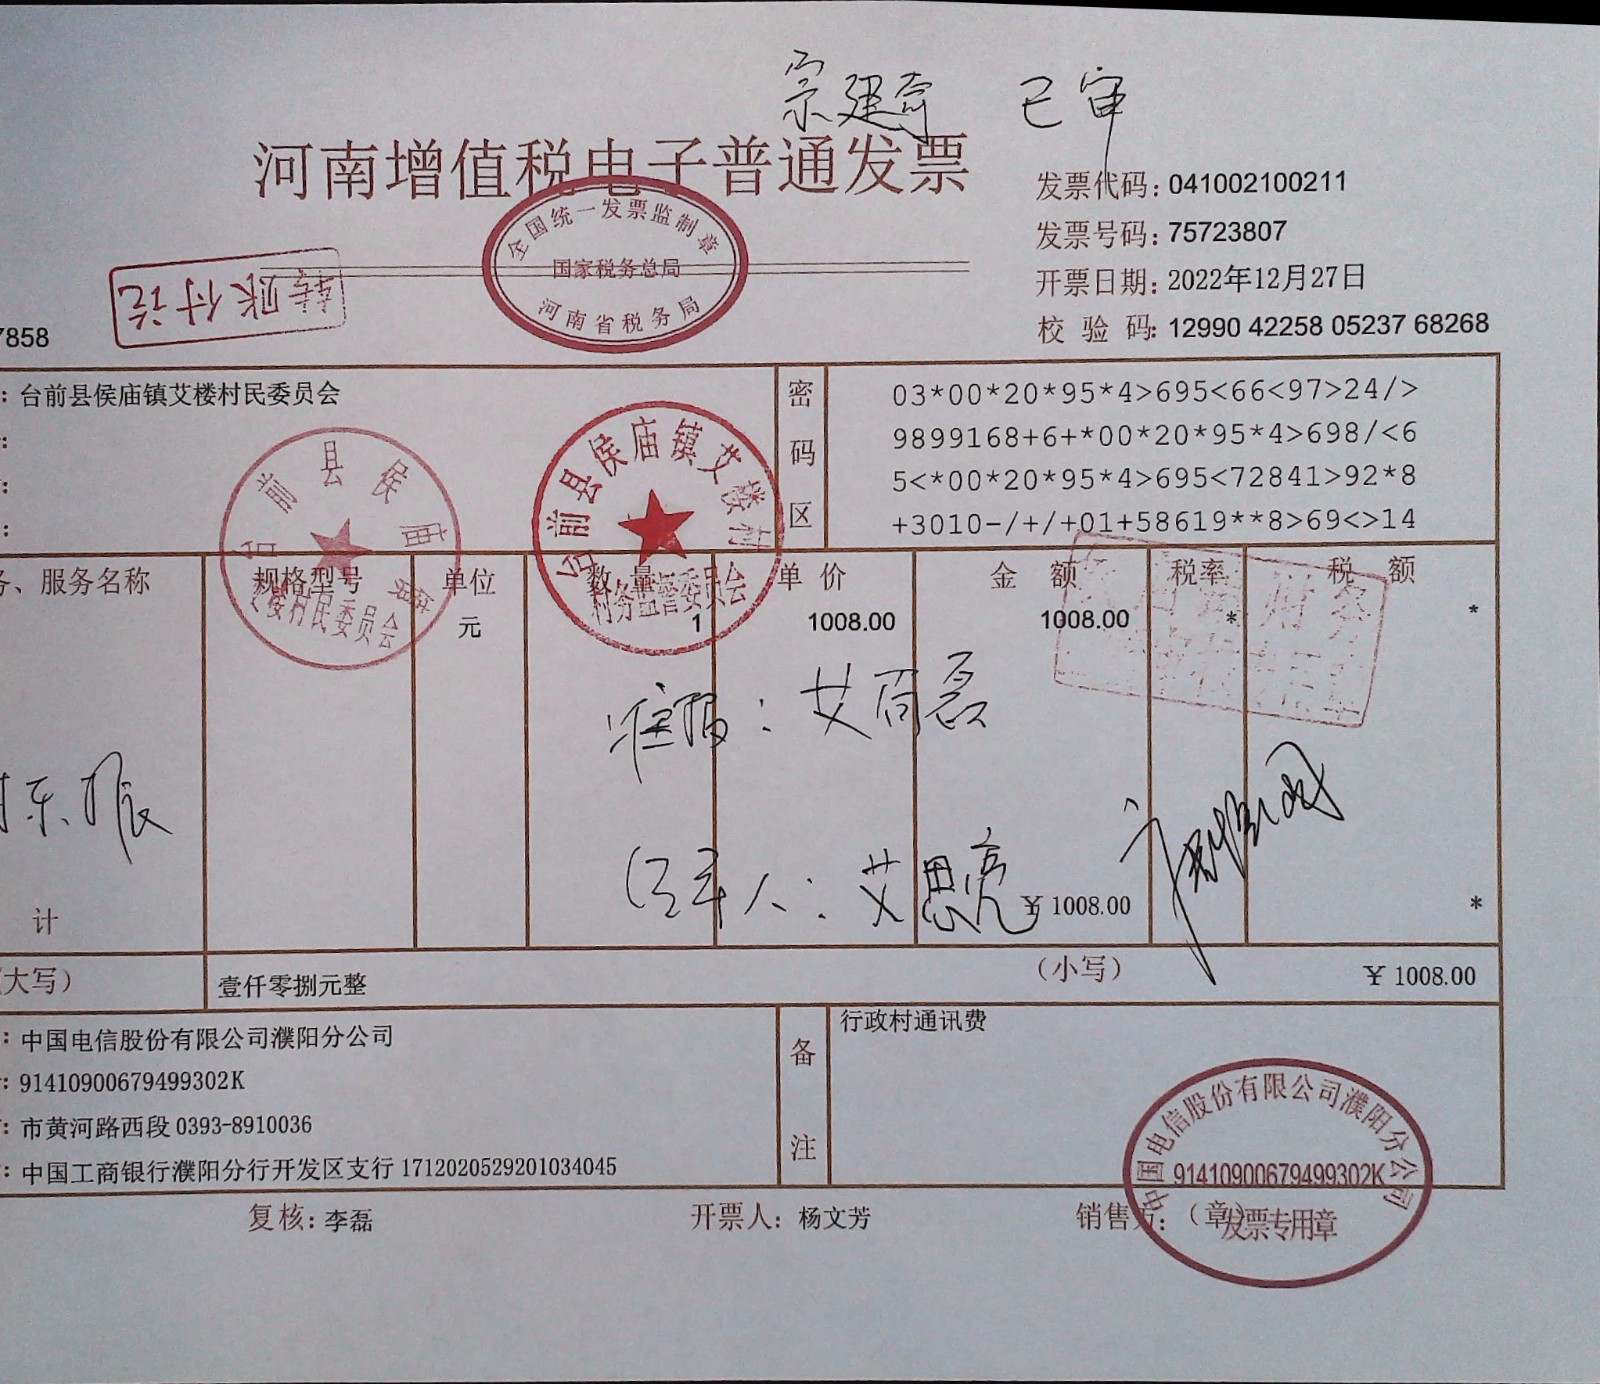 宗建奇 已审
河南增值税电子普通发票
发票代码: 041002100211
发票号码: 75723807
开票日期: 2022年12月27日
校 验 码: 12990 42258 05237 68268
全国统一发票监制章
国家税务总局
河南省税务局
转账付讫
7858
: 台前县侯庙镇艾楼村民委员会
密码区
03*00*20*95*4>695<66<97>24/>
9899168+6+*00*20*95*4>698/<6
5<*00*20*95*4>695<72841>92*8
+3010-/+/+01+58619**8>69<>14
台前县侯庙镇
艾楼村民委员会
台前县侯庙镇艾楼村
村务监督委员会
、服务名称 规格型号 单位 数 量 单 价 金 额 税率 税 额
元 1 1008.00 1008.00 * *
准报: 艾尚磊
东振
经手人: 艾思亮
计 ¥ 1008.00 *
(大写) 壹仟零捌元整 (小写) ¥ 1008.00
: 中国电信股份有限公司濮阳分公司
: 91410900679499302K
: 市黄河路西段 0393-8910036
: 中国工商银行濮阳分行开发区支行 1712020529201034045
备注
行政村通讯费
中国电信股份有限公司濮阳分公司
91410900679499302K
发票专用章
复核: 李磊 开票人: 杨文芳 销售方: (章)